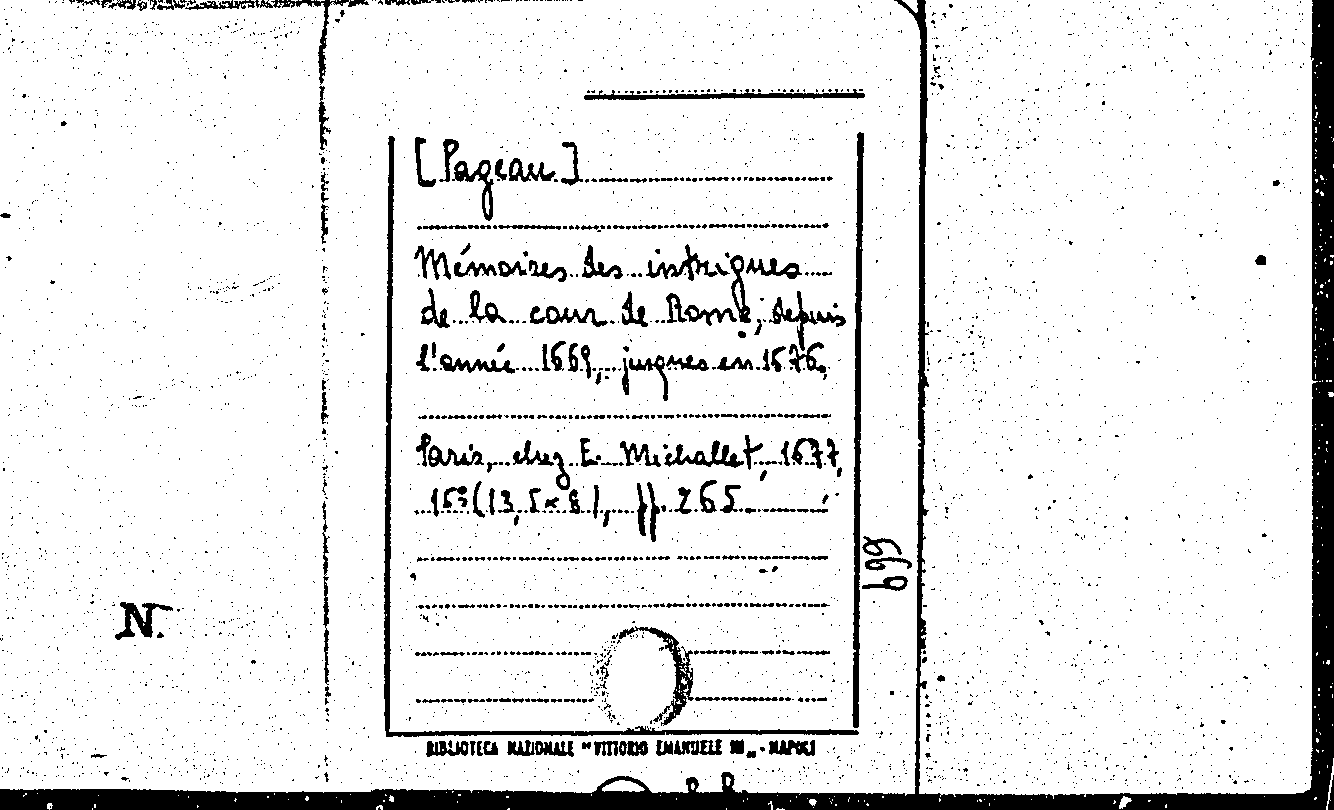 [Pageau]
Mémoires des intrigues
de la cour de Rome, depuis
l'année 1669, jusques en 1676.
Paris, chez E. Michallet, 1677,
16º (13,5 x 8), pp. 265.
699
N.
BIBLIOTECA NAZIONALE "VITTORIO EMANUELE III„ - NAPOLI